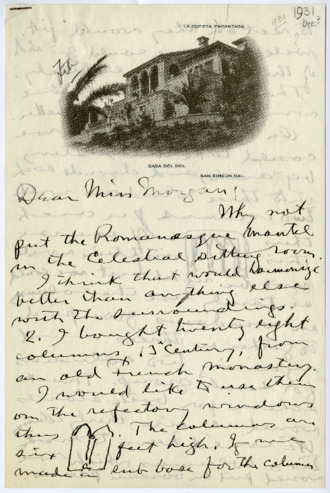 1931
Dec. ?
LA CUESTA ENCANTADA
File
CASA DEL SOL
SAN SIMEON, CAL.
Dear Miss Morgan:
Why not
put the Romanesque mantel
in the Celestial sitting room.
I think that would harmonize
better than anything else
with the surroundings.
2. I bought twenty eight
columns, 13 Century, from
an old French monastery.
I would like to use them
on the refectory windows
thus. The columns are
six feet high. If we
made a sub base for the columns